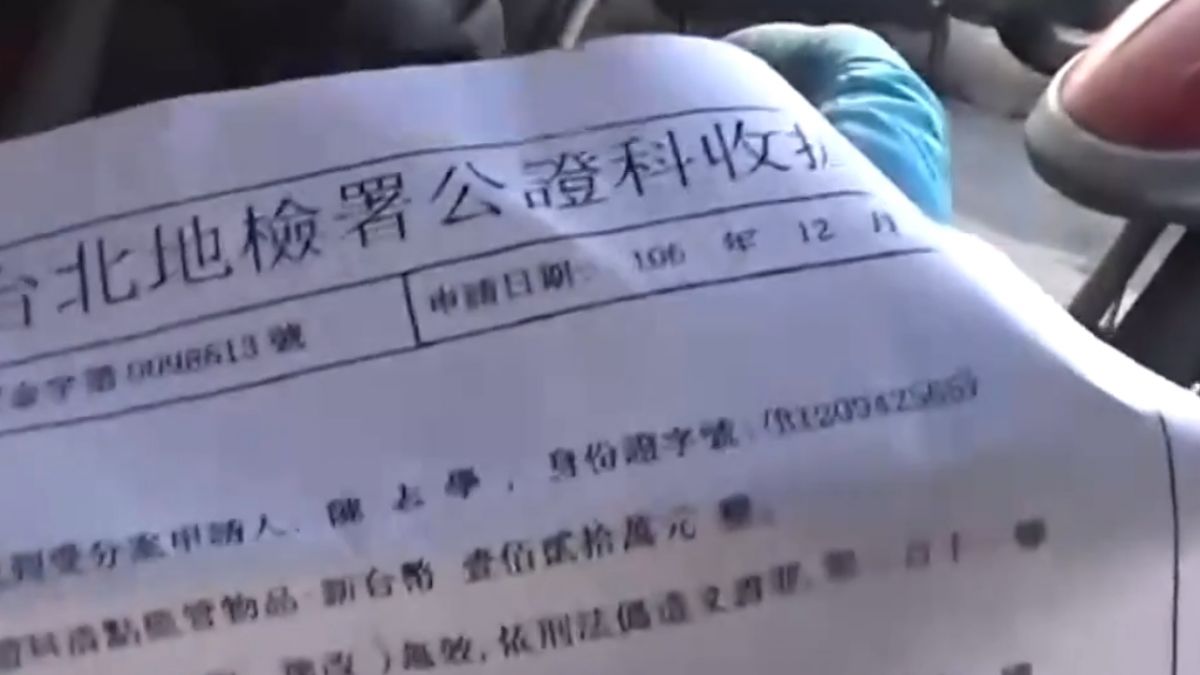 台北地檢署公證科收據
字第0098613號 申請日期: 106 年 12 月
受分案申請人: 陳志學, 身份證字號:(R120942565)
清點監管物品 新台幣 壹佰貳拾萬元 整。
塗改)無效,依刑法偽造文書罪,第二百十